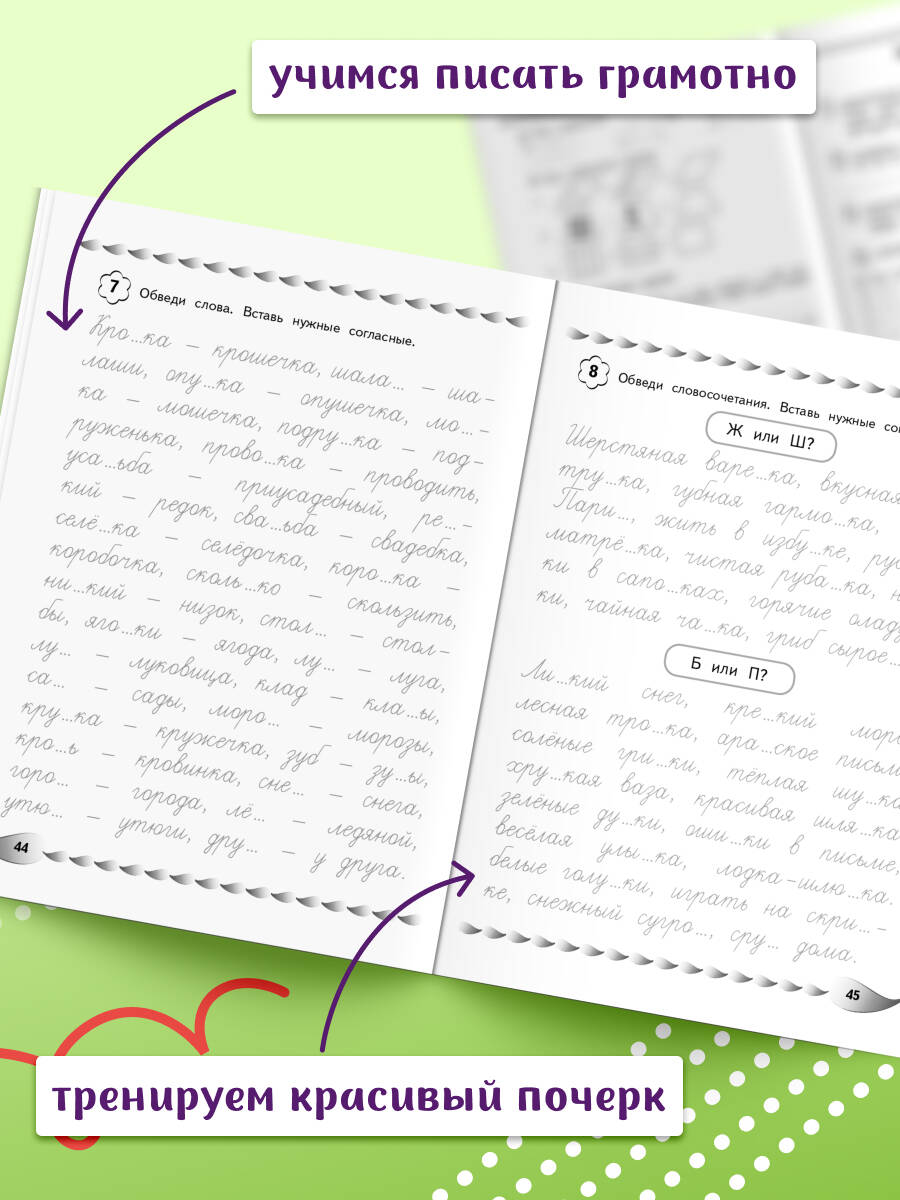 учимся писать грамотно
7 Обведи слова. Вставь нужные согласные.
Кро...ка – крошечка, шала... – ша-
лаши, опу...ка – опушечка, мо...-
ка – мошечка, подру...ка – под-
руженька, прово...ка – проводить,
уса...ьба – приусадебный, ре...-
кий – редок, сва...ьба – свадебка,
селё...ка – селёдочка, коро...ка –
коробочка, сколь...ко – скользить,
ни...кий – низок, стол... – стол-
бы, яго...ки – ягода, лу... – луга,
лу... – луковица, клад – кла...ы,
са... – сады, моро... – морозы,
кру...ка – кружечка, зуб – зу...ы,
кро...ь – кровинка, сне... – снега,
горо... – города, лё... – ледяной,
утю... – утюги, дру... – у друга.
44
8 Обведи словосочетания. Вставь нужные
Ж или Ш?
Шерстяная варе...ка, вкусная
тру...ка, губная гармо...ка,
Пари..., жить в избу...ке,
матрё...ка, чистая руба...ка,
ки в сапо...ках, горячие
ки, чайная ча...ка, гриб сырое...
Б или П?
Ли...кий снег, кре...кий
лесная тро...ка, ара...ское
солёные гри...ки, тёплая
хру...кая ваза, красивая шля...ка
зелёные ду...ки, оши...ки в письме,
весёлая улы...ка, лодка-шлю...ка.
белые голу...ки, играть на скри...-
ке, снежный сугро..., сру... дома.
45
тренируем красивый почерк